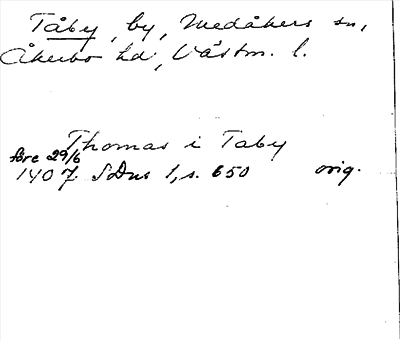 Tåby, by, Medåkers sn,
Åkerbo hd, Västm. l.
Thomas i Taby
före 29/6
1407 SDns 1, s. 650 orig.